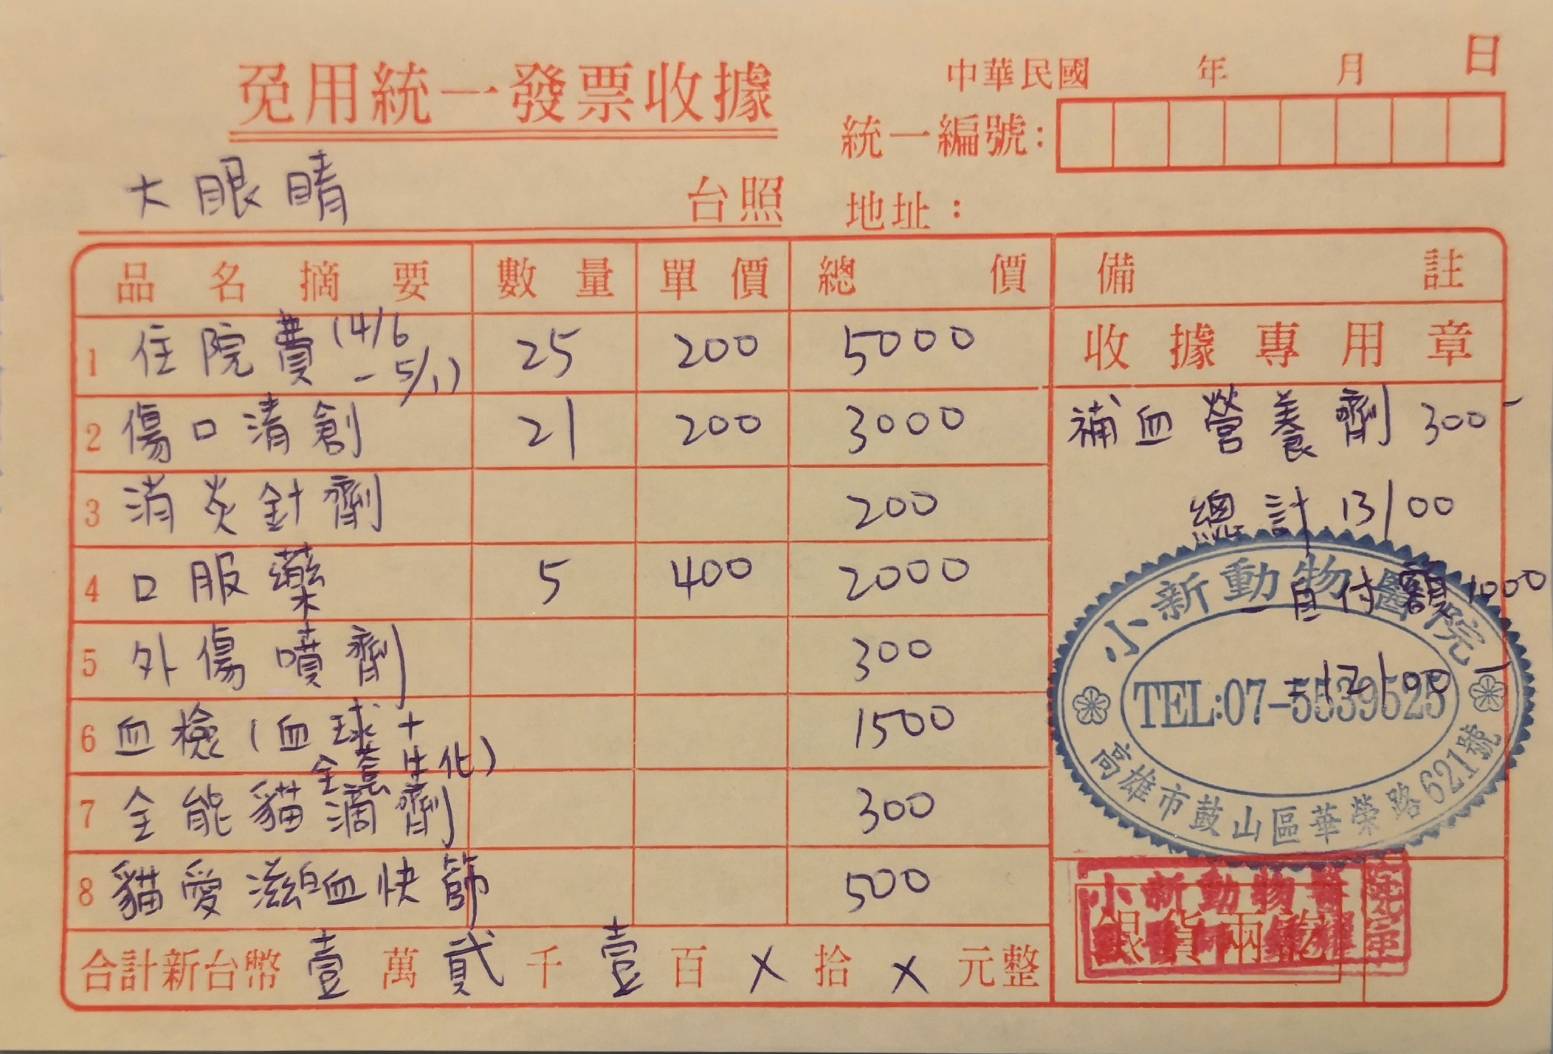 免用統一發票收據
中華民國 年 月 日
統一編號:
大眼睛 台照
地址:
品名摘要 數量 單價 總價 備註
收據專用章
1 住院費(4/6 - 5/1) 25 200 5000
2 傷口清創 21 200 3000
3 消炎針劑 200
4 口服藥 5 400 2000
5 外傷噴劑 300
6 血檢(血球+全套生化) 1500
7 全能貓滴劑 300
8 貓愛滋白血快篩 500
補血營養劑 300-
總計 13100
-自付額1000
=12100-
小新動物醫院
TEL:07-5539525
高雄市鼓山區華榮路621號
小新動物醫院
銀貨兩訖
合計新台幣 壹 萬 貳 千 壹 百 X 拾 X 元整